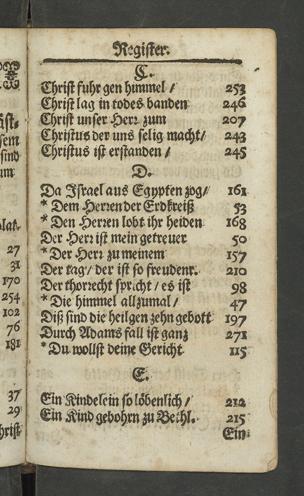 Register.
C.
Christ fuhr gen himmel /   253
Christ lag in todes banden   246
Christ unser Herr zum   207
Christus der uns selig macht /   243
Christus ist erstanden /   245
D.
Da Israel aus Egypten zog /   161
* Dem Herren der Erdkreiß   53
* Den Herren lobt ihr heiden   168
Der Herr ist mein getreuer   50
* Der Herr zu meinem   157
Der tag / der ist so freudenr.   210
Der thorrecht spricht / es ist   98
* Die himmel allzumal /   47
Diß sind die heilgen zehn gebott   197
Durch Adams fall ist ganz   271
* Du wollst deine Gericht   115
E.
Ein Kindelein so löbenlich /   212
Ein Kind gebohrn zu Bethl.   215
Ein
27
31
170
254
102
76
181
37
29